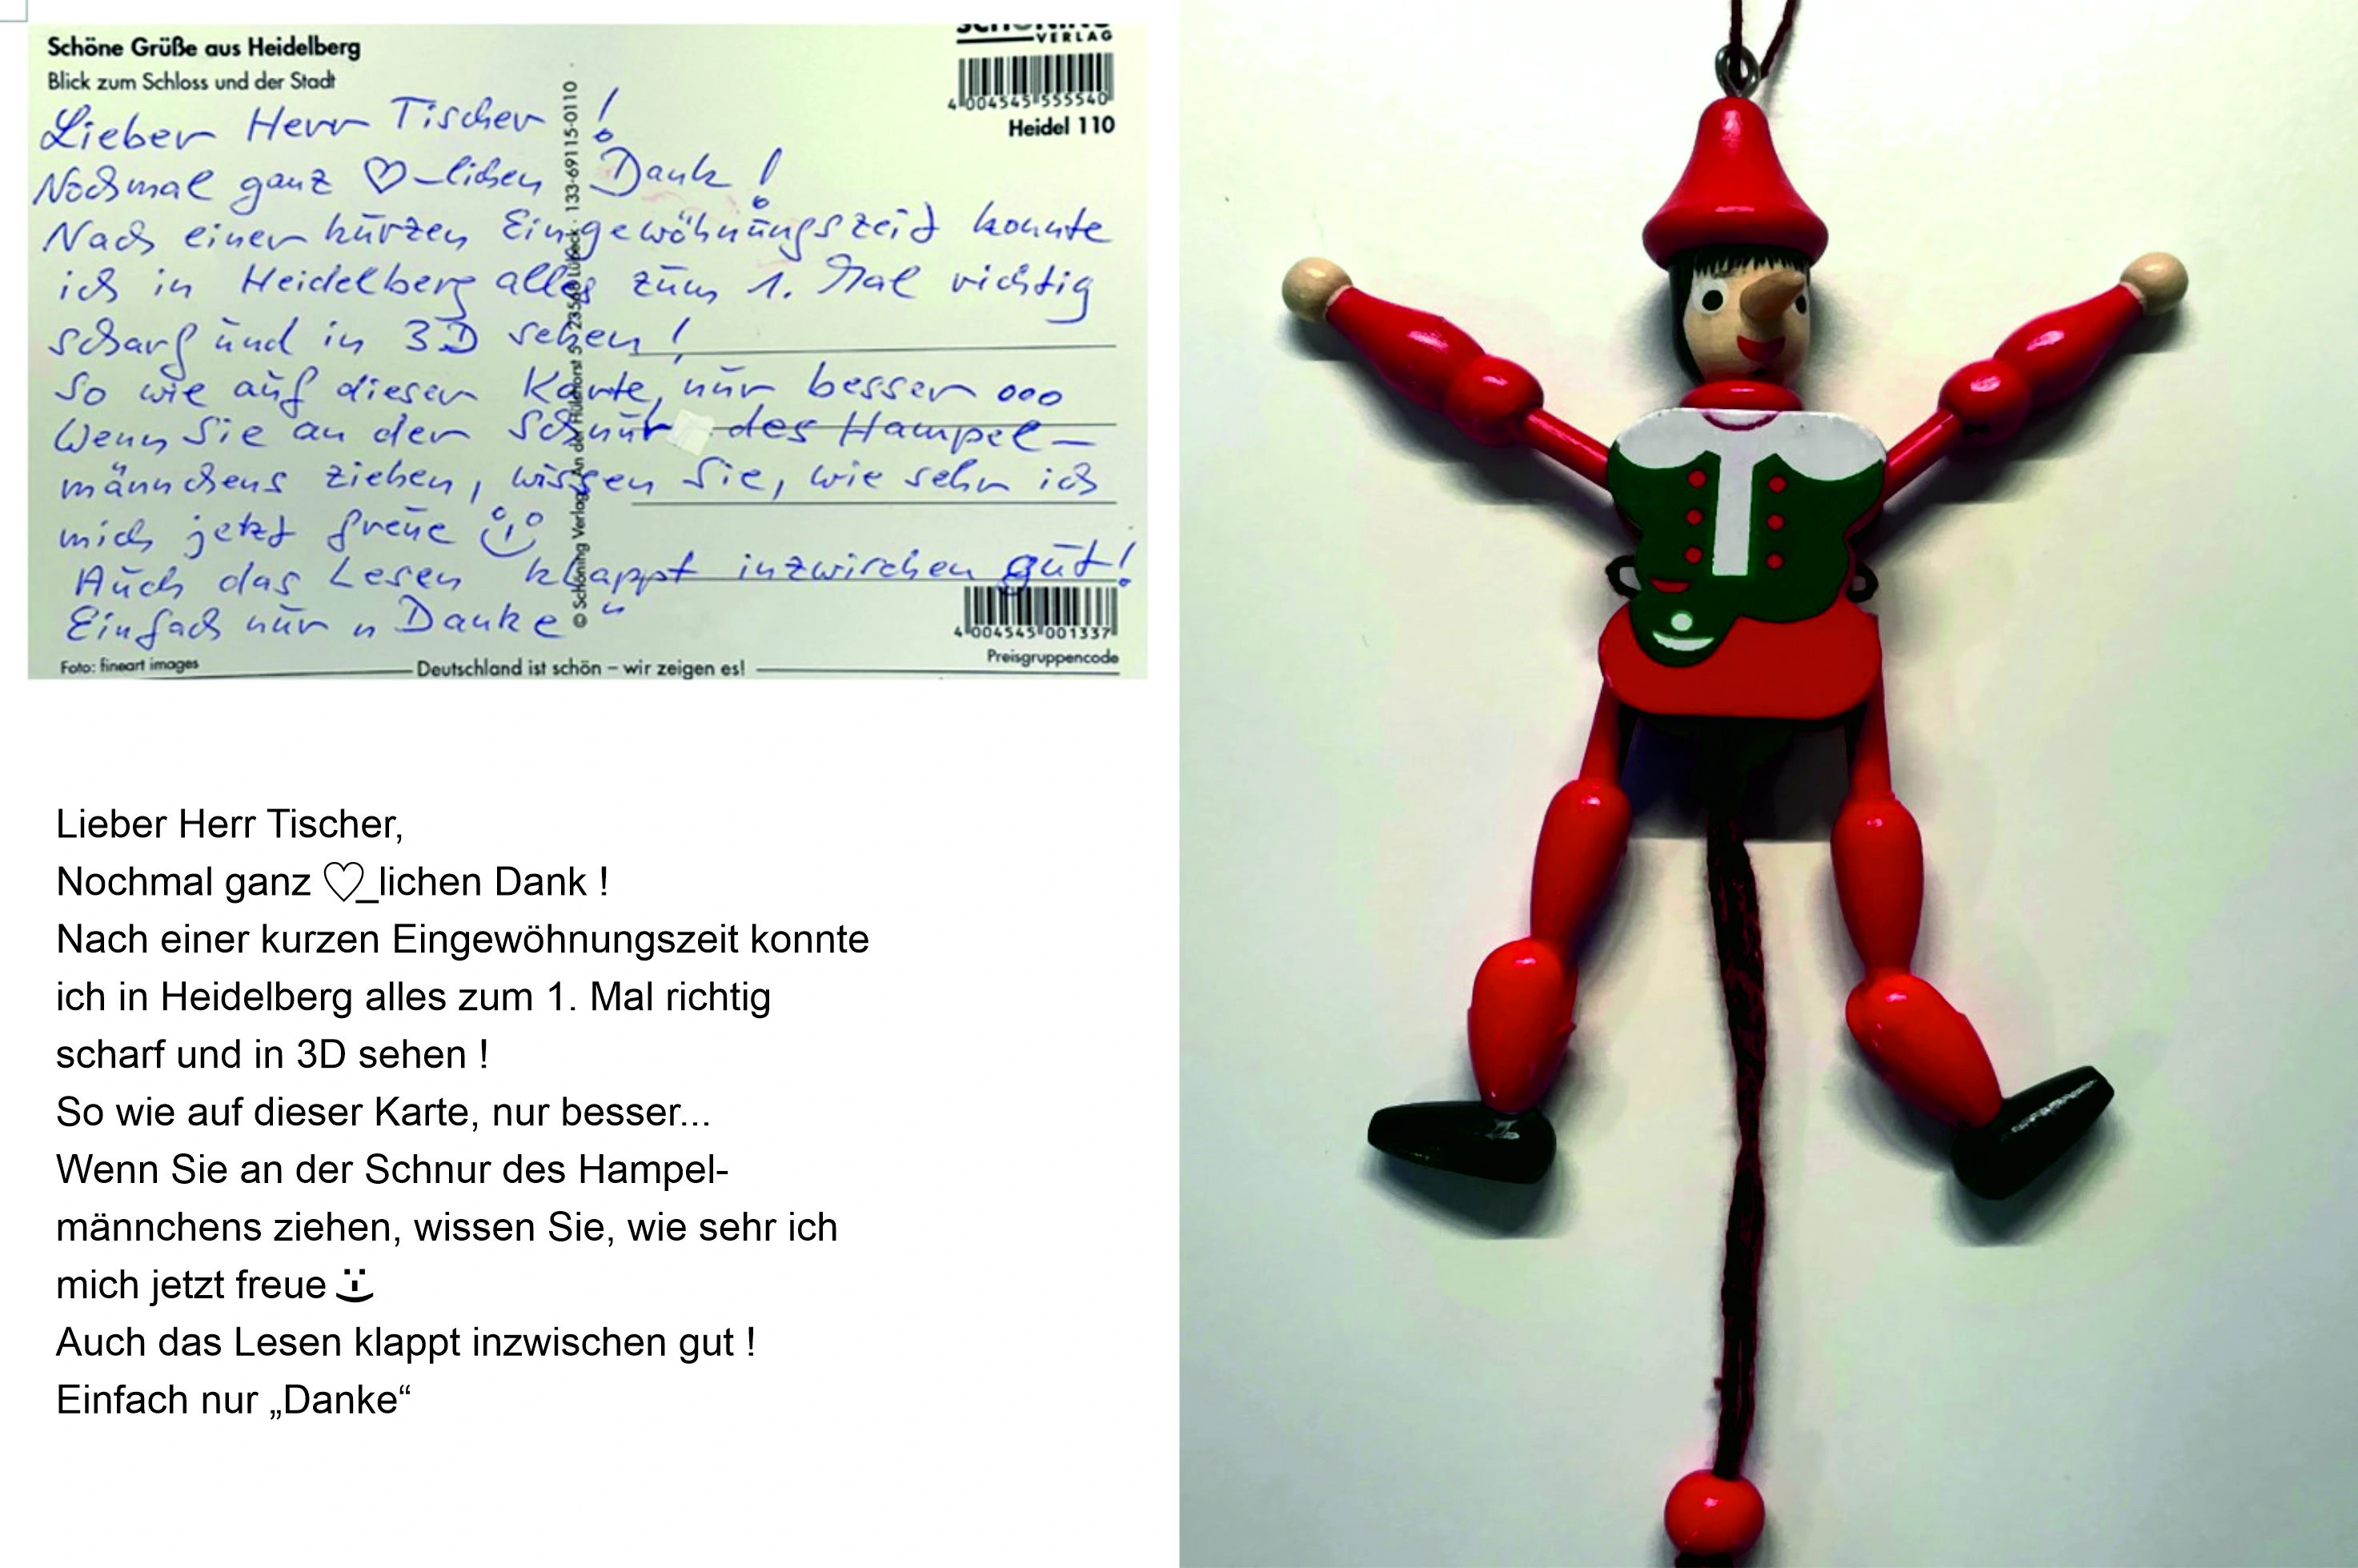 Schöne Grüße aus Heidelberg
Blick zum Schloss und der Stadt
VERLAG
4 004545 555540
Heidel 110
Lieber Herr Tischer !
Nochmal ganz ♡-lichen Dank !
Nach einer kurzen Eingewöhnungszeit konnte
ich in Heidelberg alles zum 1. Mal richtig
scharf und in 3D sehen !
So wie auf dieser Karte, nur besser ...
Wenn Sie an der Schnur des Hampel-
männchens ziehen, wissen Sie, wie sehr ich
mich jetzt freue
Auch das Lesen klappt inzwischen gut !
Einfach nur „Danke“
© Schöning Verlag An der Hülshorst 5 23568 Lübeck · 133-69115-0110
4 004545 001337
Preisgruppencode
Foto: fineart images
Deutschland ist schön – wir zeigen es!
Lieber Herr Tischer,
Nochmal ganz ♡_lichen Dank !
Nach einer kurzen Eingewöhnungszeit konnte
ich in Heidelberg alles zum 1. Mal richtig
scharf und in 3D sehen !
So wie auf dieser Karte, nur besser...
Wenn Sie an der Schnur des Hampel-
männchens ziehen, wissen Sie, wie sehr ich
mich jetzt freue
Auch das Lesen klappt inzwischen gut !
Einfach nur „Danke“